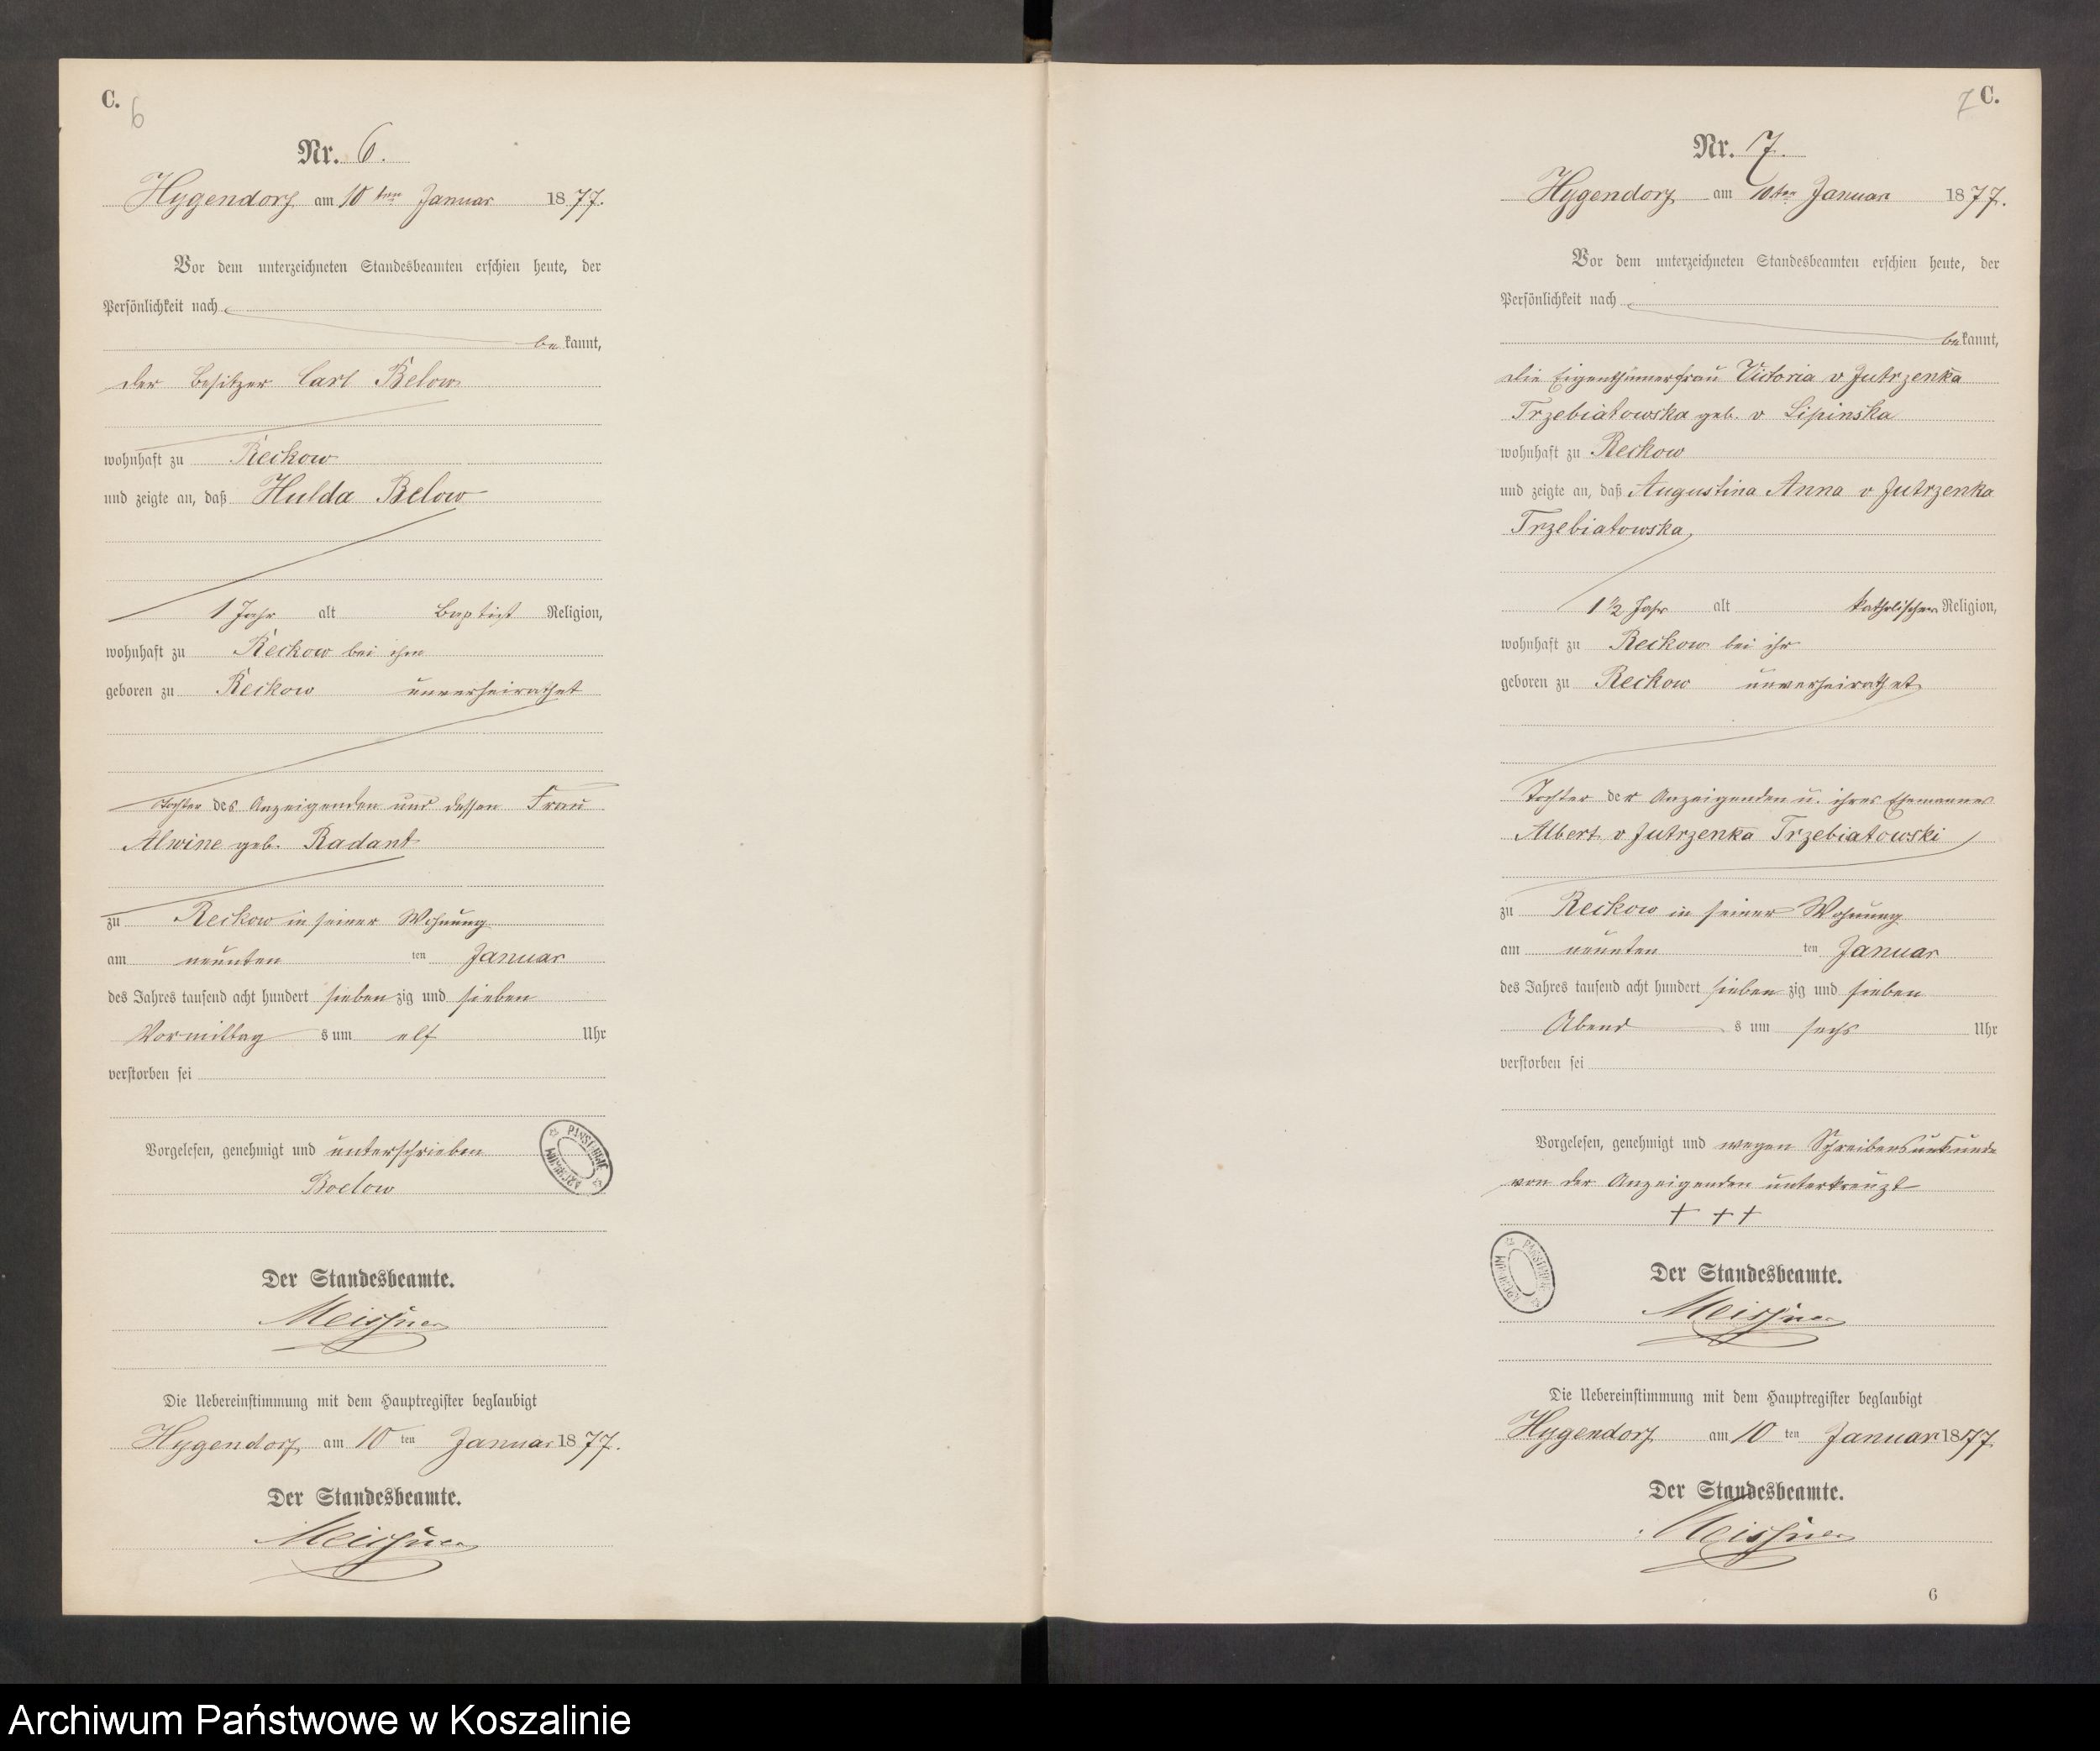 C.
6
Nr. 6.
Hygendorf am 10ten Januar 1877.
Vor dem unterzeichneten Standesbeamten erschien heute, der
Persönlichkeit nach
bekannt,
der Besitzer Carl Below
wohnhaft zu Reckow
und zeigte an, daß Hulda Below
1 Jahr alt Baptist Religion,
wohnhaft zu Reckow bei ihm
geboren zu Reckow unverheirathet
Tochter des Anzeigenden und dessen Frau
Alwine geb. Radant
zu Reckow in seiner Wohnung
am neunten ten Januar
des Jahres tausend acht hundert siebenzig und sieben
Vormittags um elf Uhr
verstorben sei
Vorgelesen, genehmigt und unterschrieben
Boelow
PAŃSTWOWE ARCHIWUM
Der Standesbeamte.
Meissner
Die Uebereinstimmung mit dem Hauptregister beglaubigt
Hygendorf am 10ten Januar 1877.
Der Standesbeamte.
Meissner
7 C.
Nr. 7.
Hygendorf am 10ten Januar 1877.
Vor dem unterzeichneten Standesbeamten erschien heute, der
Persönlichkeit nach
bekannt,
die Eigenthümerfrau Victoria v Jutrzenka
Trzebiatowska geb. v Lipinska
wohnhaft zu Reckow
und zeigte an, daß Augustina Anna v Jutrzenka
Trzebiatowska,
1 1/2 Jahr alt katholischer Religion,
wohnhaft zu Reckow bei ihr
geboren zu Reckow unverheirathet
Tochter der Anzeigenden u. ihres Ehemannes
Albert v Jutrzenka Trzebiatowski
zu Reckow in seiner Wohnung
am neunten ten Januar
des Jahres tausend acht hundert siebenzig und sieben
Abends um sechs Uhr
verstorben sei
Vorgelesen, genehmigt und wegen Schreibensunkunde
von der Anzeigenden unterkreuzt
+ + +
PAŃSTWOWE ARCHIWUM
Der Standesbeamte.
Meissner
Die Uebereinstimmung mit dem Hauptregister beglaubigt
Hygendorf am 10ten Januar 1877
Der Standesbeamte.
Meissner
6
Archiwum Państwowe w Koszalinie